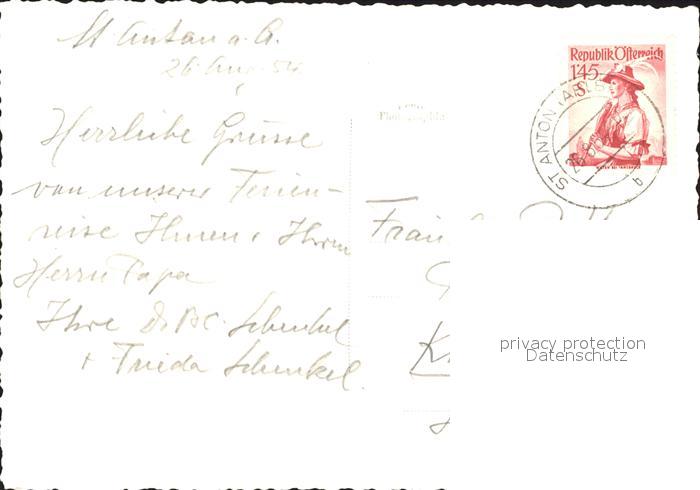 St. Anton a. A.
26. Aug. 54
Herrliche Grüsse
von unserer Ferien-
reise Ihnen + Ihrem
Herrn Papa
Ihre
Schenkel
+ Frieda Schenkel.
Photographie
Republik Österreich
1'45
S
ST ANTON
26.8.54
b
privacy protection
Datenschutz